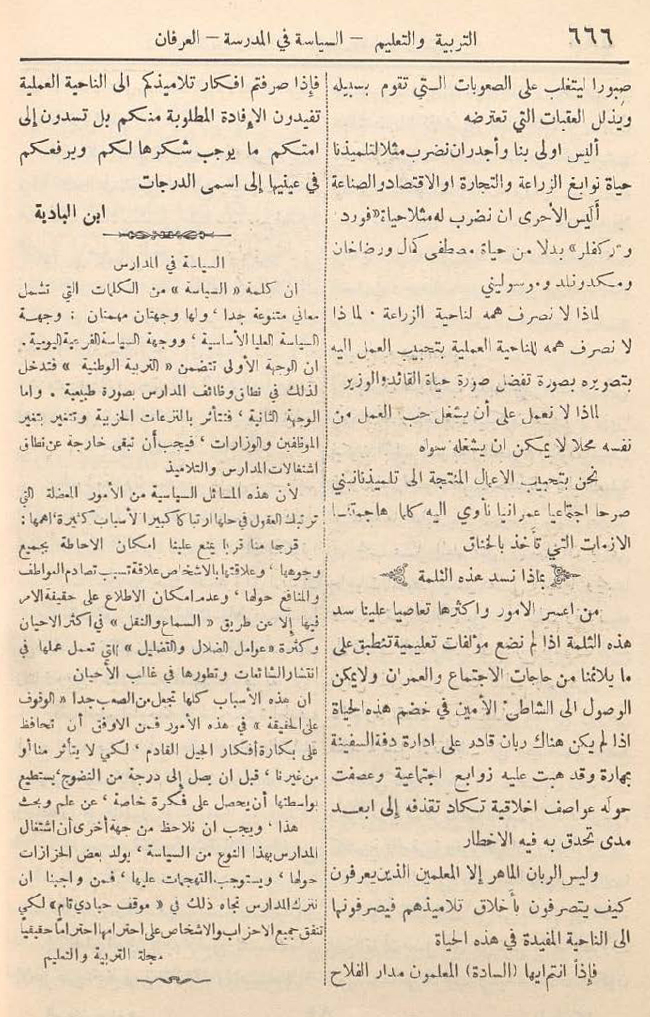 ٦٦٦ التربية والتعليم – السياسة في المدرسة – العرفان
صبورا ليتغلب على الصعوبات التي تقوم بسبيله
ويذلل العقبات التي تعترضه
أليس اولى بنا وأجدر ان نضرب مثلا لتلميذنا
حياة نوابغ الزراعة والتجارة او الاقتصاد والصناعة
أليس الأحرى ان نضرب له مثلا حياة «فورد
و روكفلر» بدلا من حياة مصطفى كمال ورضاخان
ومكدونلد وموسوليني
لماذا لا نصرف همه لناحية الزراعة . لماذا
لا نصرف همه للناحية العملية بتحبيب العمل اليه
بتصويره بصورة تفضل صورة حياة القائد والوزير
لماذا لا نعمل على أن يشغل حب العمل من
نفسه محلا لا يمكن ان يشغله سواه
نحن بتحبيب الاعمال المنتجة الى تلميذنا نبني
صرحا اجتماعيا عمرانيا نأوي اليه كلما هاجمتنا
الازمات التي تأخذ بالخناق
بماذا نسد هذه الثلمة
من اعسر الامور واكثرها تعاصيا علينا سد
هذه الثلمة اذا لم نضع مؤلفات تعليمية تنطبق على
ما يلائمنا من حاجات الاجتماع والعمران ولا يمكن
الوصول الى الشاطئ الأمين في خضم هذه الحياة
اذا لم يكن هناك ربان قادر على ادارة دفة السفينة
بمهارة وقد هبت عليه زوابع اجتماعية وعصفت
حوله عواصف اخلاقية تكاد تقذفه إلى ابعد
مدى تحدق به فيه الاخطار
وليس الربان الماهر إلا المعلمين الذين يعرفون
كيف يتصرفون بأخلاق تلاميذهم فيصرفونها
الى الناحية المفيدة في هذه الحياة
فإذاً انتم ايها (السادة) المعلمون مدار الفلاح
فإذا صرفتم افكار تلاميذكم الى الناحية العملية
تفيدون الإفادة المطلوبة منكم بل تسدون إلى
امتكم ما يوجب شكرها لكم ويرفعكم
في عينيها إلى اسمى الدرجات
ابن البادية
السياسة في المدارس
ان كلمة «السياسة» من الكلمات التي تشمل
معاني متنوعة جدا ، ولها وجهتان مهمتان : وجهة
السياسة العليا الأساسية ، ووجهة السياسة الفرعية اليومية.
ان الوجهة الأولى تتضمن «التربية الوطنية» فتدخل
لذلك في نطاق وظائف المدارس بصورة طبيعية . واما
الوجهة الثانية ، فتتأثر بالنزعات الحزبية وتتغير بتغير
الموظفين والوزارات ، فيجب أن تبقى خارجة عن نطاق
اشتغالات المدارس والتلاميذ
لأن هذه المسائل السياسية من الأمور المعضلة التي
ترتبك العقول في حلها ارتباكا كبيرا لأسباب كثيرة ، اهمها :
قربها منا قربا يمنع علينا امكان الاحاطة بجميع
وجوهها ، وعلاقتها بالاشخاص علاقة تسبب تصادم العواطف
والمنافع حولها ، وعدم امكان الاطلاع على حقيقة الامر
فيها إلا عن طريق «السماع والنقل» في أكثر الاحيان
وكثرة «عوامل الضلال والتضليل» التي تعمل عملها في
انتشار الشائعات وتطورها في غالب الأحيان
ان هذه الأسباب كلها تجعل من الصعب جدا «الوقوف
على الحقيقة» في هذه الأمور فمن الاوفق أن نحافظ
على بكارة أفكار الجيل القادم ، لكي لا يتأثر منا أو
من غيرنا ، قبل ان يصل إلى درجة من النضوج ، يستطيع
بواسطتها أن يحصل على فكرة خاصة ، عن علم وبحث
هذا ، ويجب ان نلاحظ من جهة أخرى أن اشتغال
المدارس بهذا النوع من السياسة ، يولد بعض الحزازات
حولها ، ويستوجب التهجمات عليها ، فمن واجبنا ان
نترك المدارس تجاه ذلك في «موقف حيادي تام» لكي
تتفق جميع الاحزاب والاشخاص على احترامها احتراماً حقيقياً
مجلة التربية والتعليم